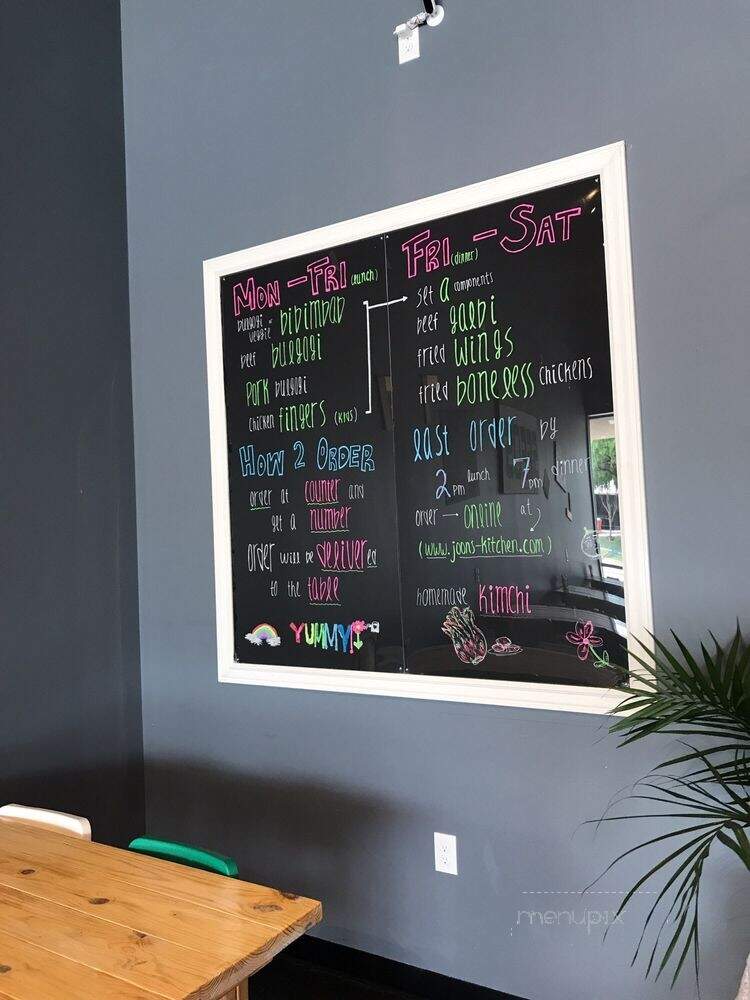 MON - FRI (lunch)
bulgogi or
veggie bibimbap
beef bulgogi
PORK bulgogi
chicken fingers (kids)
HOW 2 ORDER
order at counter and
get a number
order will be delivered
to the table
YUMMY!
FRI - SAT
(dinner)
set a components
beef galbi
fried wings
fried boneless chickens
last order by
2pm lunch 7pm dinner
order → online at
(www.joons-kitchen.com)
homemade kimchi
menupix